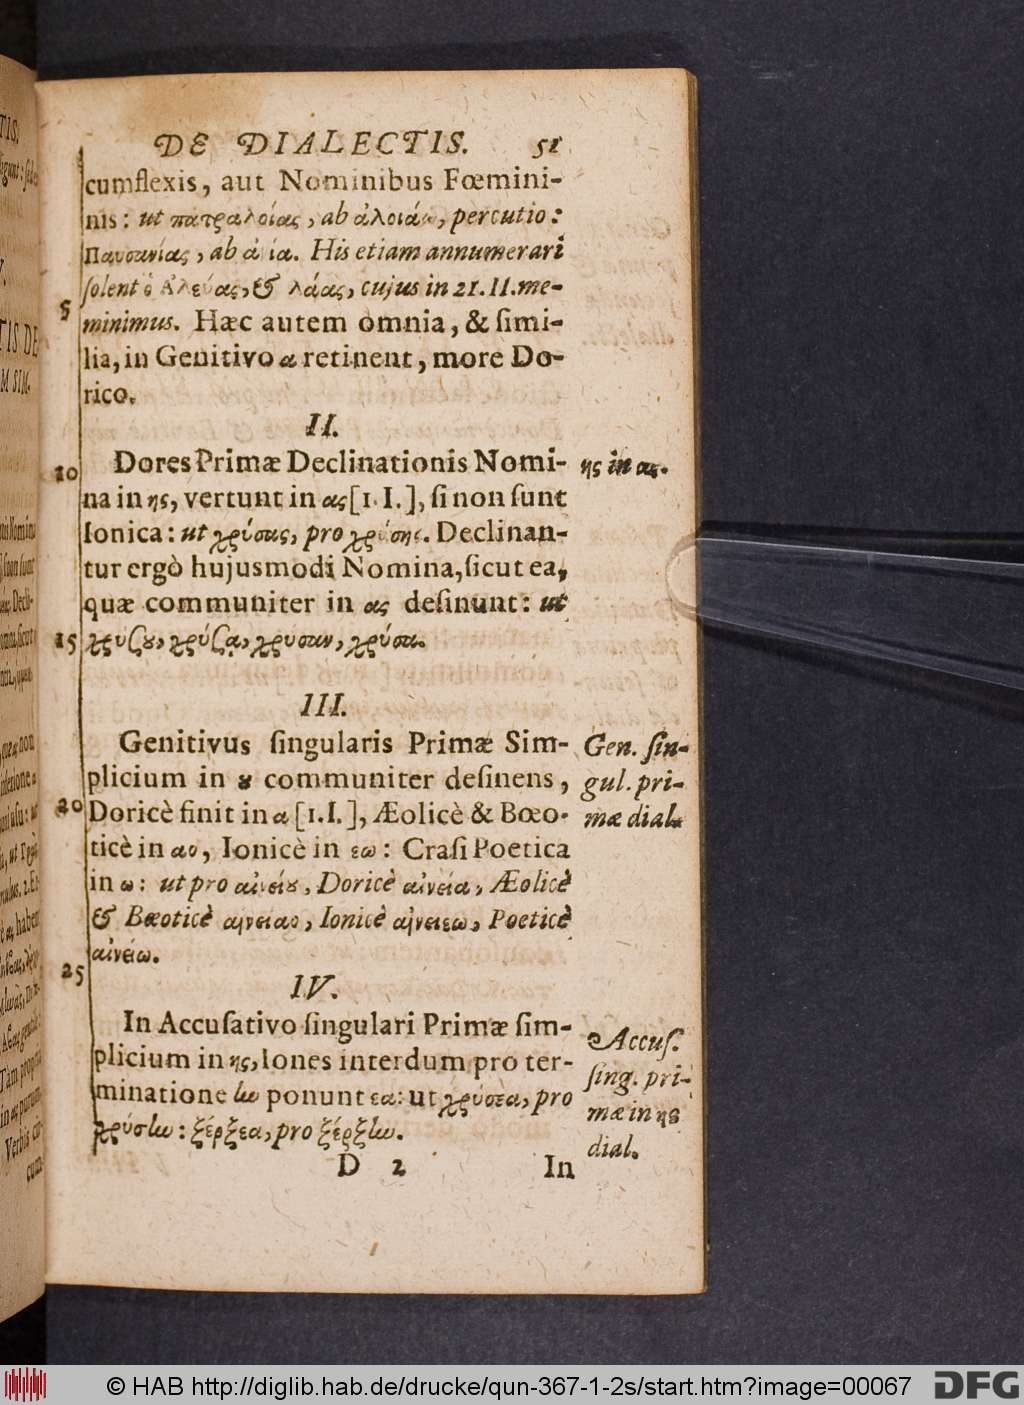 DE DIALECTIS. 51
cumflexis, aut Nominibus Fœmini-
nis: ut πατραλοίας, ab ἀλοιάω, percutio:
Παυσανίας, ab ἀνία. His etiam annumerari
ſolent ὁ Ἀλεύας, & λάας, cujus in 21. II. me-
5 minimus. Hæc autem omnia, & ſimi-
lia, in Genitivo α retinent, more Do-
rico.
II.
10 Dores Primæ Declinationis Nomi-
ης in ας.
na in ης, vertunt in ας [1. I.], ſi non ſunt
Ionica: ut χρύσας, pro χρύσης. Declinan-
tur ergò hujusmodi Nomina, ſicut ea,
quæ communiter in ας deſinunt: ut
15
III.
Genitivus ſingularis Primæ Sim-
Gen. ſin-
plicium in ȣ communiter deſinens,
gul. pri-
20 Doricè finit in α [1.I.], Æolicè & Bœo-
mæ dial.
ticè in αο, Ionicè in εω: Craſi Poetica
in ω: ut pro αἰνείȣ, Doricè αἰνεία, Æolicè
& Bœoticè αἰνειαο, Ionicè αἰνειεω, Poeticè
αἰνείω.
25
IV.
In Accuſativo ſingulari Primæ ſim-
Accuſ.
plicium in ης, Iones interdum pro ter-
ſing. pri-
minatione ην ponunt εα: ut χρύσεα, pro
mæ in ης
χρύσην: ξέρξεα, pro ξέρξην.
dial.
D 2 In
© HAB http://diglib.hab.de/drucke/qun-367-1-2s/start.htm?image=00067
DFG